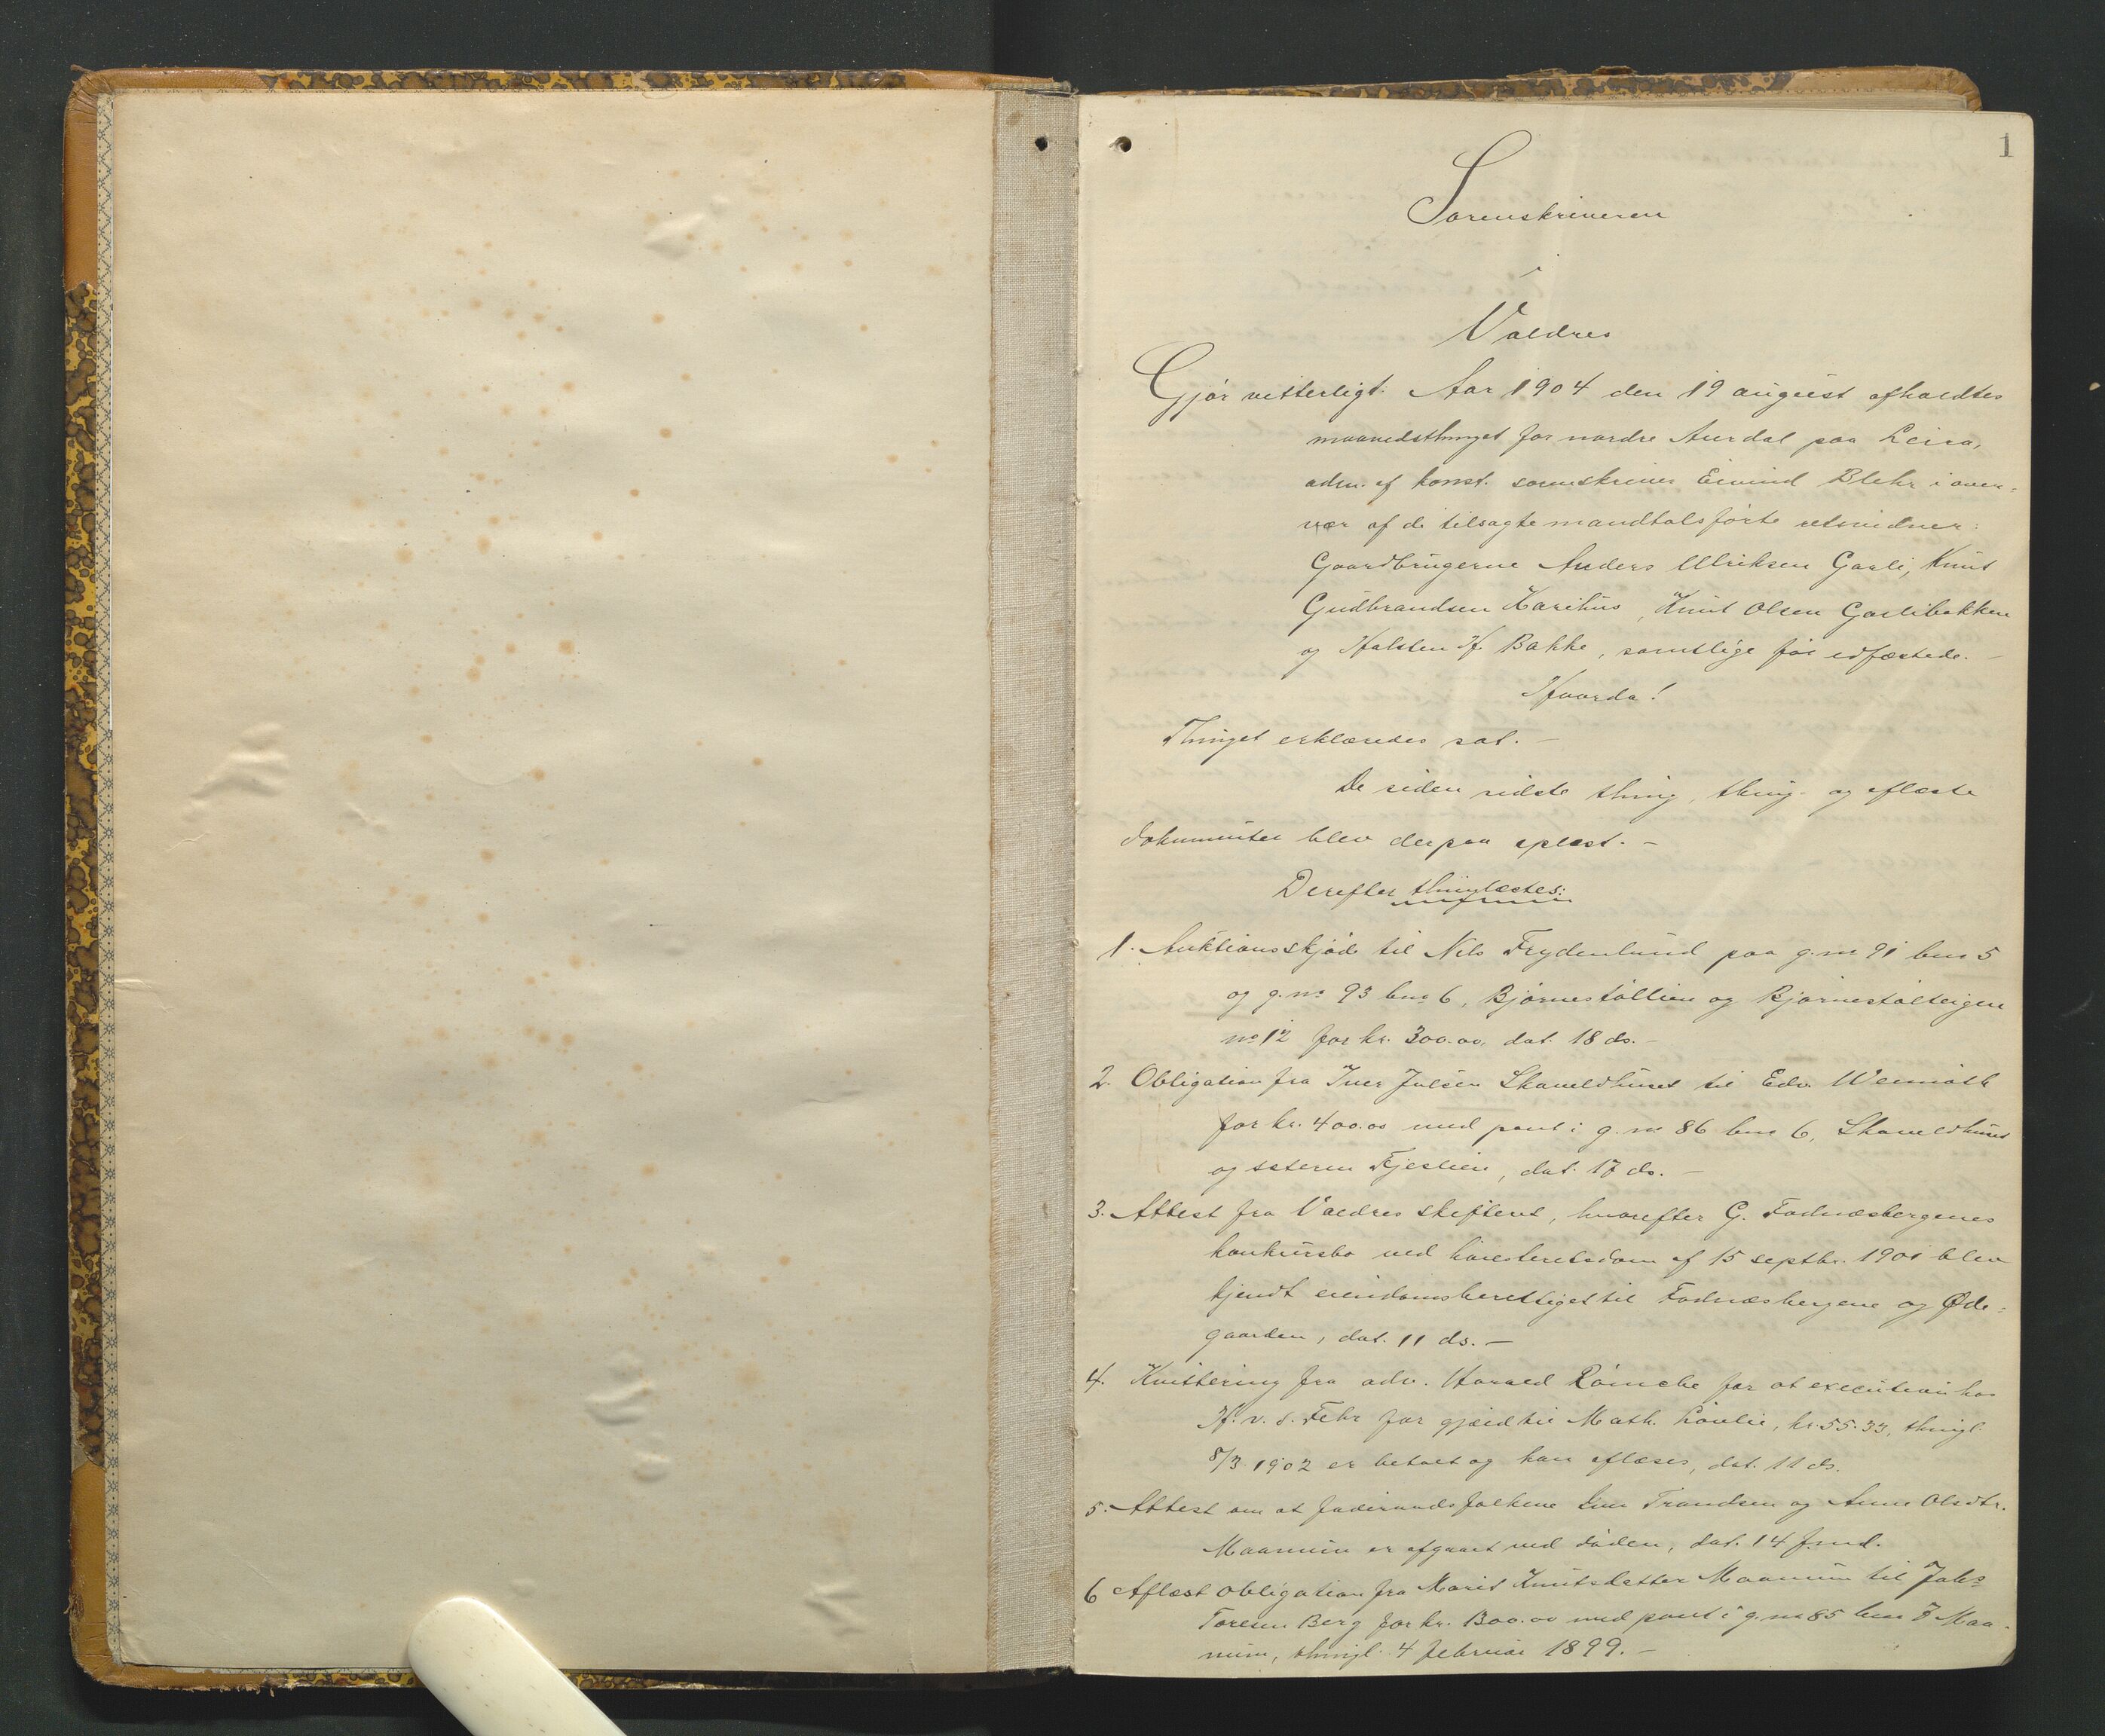 1
Sorenskriveren
i
Valdres
Gjör vitterligt: Aar 1904 den 19 august afholdtes
maanedsthinget for nordre Aurdal paa Leira,
adm. af konst. sorenskriver Eivind Blehr i over-
vær af de tilsagte mandtalsförte retsvidner:
Gaardbrugerne Anders Ulriksen Garli, Knut
Gudbrandsen Karihus, Knut Olsen Garlibakken
og Halsten H. Bakke, samtlige för edfæstede. —
Hvorda!
Thinget erklæredes sat. —
De siden sidste thing, thing- og aflæste
dokumenter blev derpaa oplæst. —
Derefter thinglæstes:
1. Auktionsskjöde til Nils Frydenlund paa g.no 91 bno 5
og g.no 93 bno 6, Björnestöllien og Björnestölteigen
no 12 for kr. 300.00, dat. 18 ds. —
2. Obligation fra Iver Julsen Skaveldhuset til Edv.
for kr. 400.00 med pant i g.no 86 bno 6, Skaveldhuset
og sæteren Fjeslien, dat. 17 ds. —
3. Attest fra Valdres skifteret, hvorefter G. Fodnæsbergenes
konkursbo ved höiesteretsdom af 15 septbr. 1901 blev
kjendt eiendomsberettiget til Fodnæsbergene og Øde-
gaarden, dat. 11 ds. —
4. Kvittering fra adv. Harald for at execution hos
H. v. s. Fehr for gjæld til Math. Lönlie, kr. 55.33, thingl.
8/3 1902 er betalt og kan aflæses, dat. 11 ds.
5. Attest om at föderaadsfolkene Trondsen og Anne Olsdtr.
Maanum er afgaaet ved döden, dat. 14 f.md.
6 Aflæst obligation fra Marit Knutsdatter Maanum til Johs
Toresen Berg for kr. 1300.00 med pant i g.no 85 bno 7 Maa-
num, thingl. 4 februar 1899. —